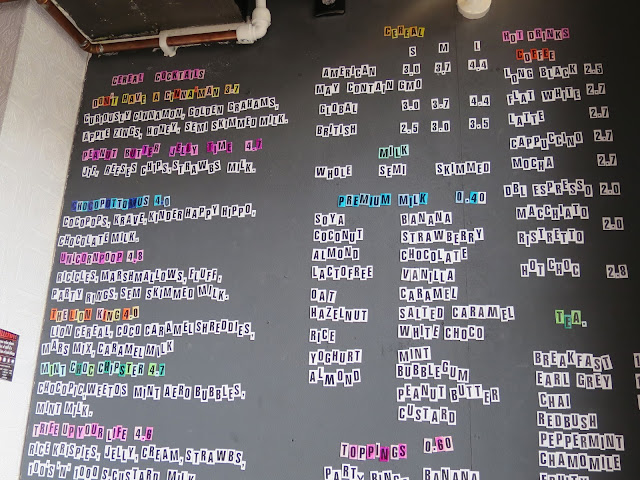 CEREAL COCKTAILS
DON'T HAVE A CINNAMAN 3.7
CURIOUSLY CINNAMON, GOLDEN GRAHAMS,
APPLE ZINGS, HONEY, SEMI SKIMMED MILK.
PEANUT BUTTER JELLY TIME 4.7
JIF, REESES CUPS, STRAWBS MILK.
CHOCOPOTTOMUS 4.0
COCOPOPS, KRAVE, KINDER HAPPY HIPPO,
CHOCOLATE MILK.
UNICORNPOOP 4.6
RICICLES, MARSHMALLOWS, FLUFF,
PARTY RINGS, SEMI SKIMMED MILK.
THE LION KING 4.0
LION CEREAL, COCO CARAMEL SHREDDIES,
MARS MIX, CARAMEL MILK
MINT CHOC CHIPSTER 4.7
CHOCOPIC, WEETOS MINT AERO BUBBLES,
MINT MILK.
TRIFE UP YOUR LIFE 4.6
RICE KRISPIES, JELLY, CREAM, STRAWBS,
100'S 'N' 1000'S, CUSTARD MILK
CEREAL
S M L
AMERICAN 3.0 3.7 4.4
MAY CONTAIN GMO
GLOBAL 3.0 3.7 4.4
BRITISH 2.5 3.0 3.5
MILK
WHOLE SEMI SKIMMED
PREMIUM MILK 0.40
SOYA BANANA
COCONUT STRAWBERRY
ALMOND CHOCOLATE
LACTOFREE VANILLA
OAT CARAMEL
HAZELNUT SALTED CARAMEL
RICE WHITE CHOCO
YOGHURT MINT
ALMOND BUBBLEGUM
PEANUT BUTTER
CUSTARD
TOPPINGS 0.60
PARTY RINGS BANANA
HOT DRINKS
COFFEE
LONG BLACK 2.5
FLAT WHITE 2.7
LATTE 2.7
CAPPUCCINO 2.7
MOCHA 2.7
DBL ESPRESSO 2.0
MACCHIATO 2.0
RISTRETTO
HOT CHOC 2.8
TEA.
BREAKFAST
EARL GREY
CHAI
REDBUSH
PEPPERMINT
CHAMOMILE
FRUIT